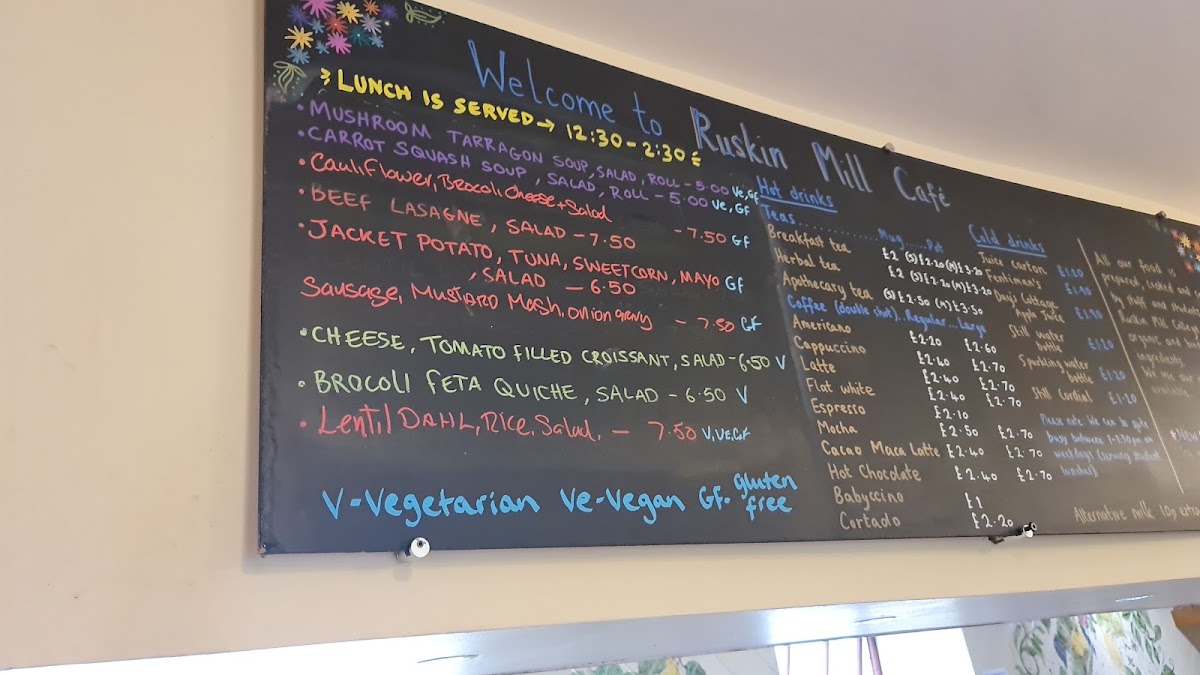 Welcome to Ruskin Mill Café
LUNCH IS SERVED → 12:30 - 2:30
• MUSHROOM TARRAGON SOUP, SALAD, ROLL - 5.00 Ve, GF
• CARROT SQUASH SOUP, SALAD, ROLL - 5.00 Ve, GF
• Cauliflower, Brocoli Cheese + Salad - 7.50 GF
• BEEF LASAGNE, SALAD - 7.50
• JACKET POTATO, TUNA, SWEETCORN, MAYO GF
, SALAD - 6.50
Sausage, Mustard Mash, onion gravy - 7.50 GF
• CHEESE, TOMATO FILLED CROISSANT, SALAD - 6.50 V
• BROCOLI FETA QUICHE, SALAD - 6.50 V
• Lentil DAHL, Rice, Salad, - 7.50 V, VE, GF
V - Vegetarian Ve - Vegan GF - gluten free
Hot drinks
Teas............... Mug...... Pot
Breakfast tea £2 (S) £2.20 (M) £3.20
Herbal tea £2 (S) £2.20 (M) £3.20
Apothecary tea (S) £2.50 (M) £3.50
Coffee (double shot)..Regular...Large
Americano £2.20 £2.60
Cappuccino £2.40 £2.70
Latte £2.40 £2.70
Flat white £2.40 £2.70
Espresso £2.10
Mocha £2.50 £2.70
Cacao Maca Latte £2.40 £2.70
Hot Chocolate £2.40 £2.70
Babyccino £1
Cortado £2.20
Cold drinks
Juice carton £1.20
Fentiman's £1.90
Day's Cottage
Apple Juice £1.90
Still water
bottle £1.20
Sparkling water
bottle £1.20
Still Cordial £1.20
Please note: We can be quite
busy between 1-2:30pm on
weekdays (serving student
lunches)
All our food is
prepared, cooked and
by staff and
Ruskin Mill
organic and
ingredients
We use our
Alternative milk 10p extra